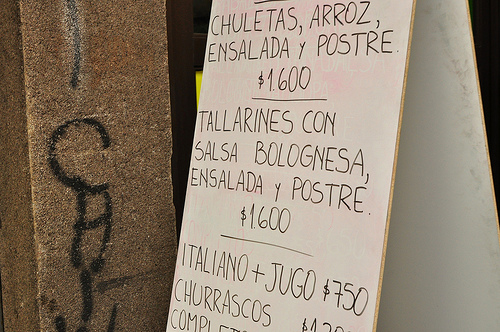 CHULETAS, ARROZ,
ENSALADA Y POSTRE.
$1.600
TALLARINES CON
SALSA BOLOGNESA,
ENSALADA Y POSTRE.
$1.600
ITALIANO + JUGO $750
CHURRASCOS